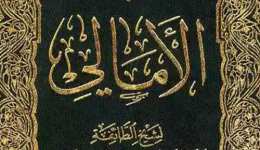 الأمالي
لشيخ الطائفة